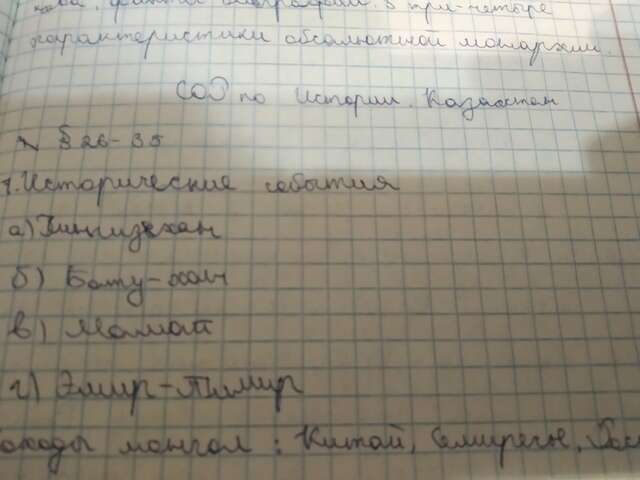 три-четыре
характеристики абсолютной монархии.
СОР по Истории. Казахстан
§ 26-35
1. Исторические события
а) Чингизхан
б) Бату-хан
в) Мамай
г) Эмир-Тимур
походы монгол: Китай, Семиречье,